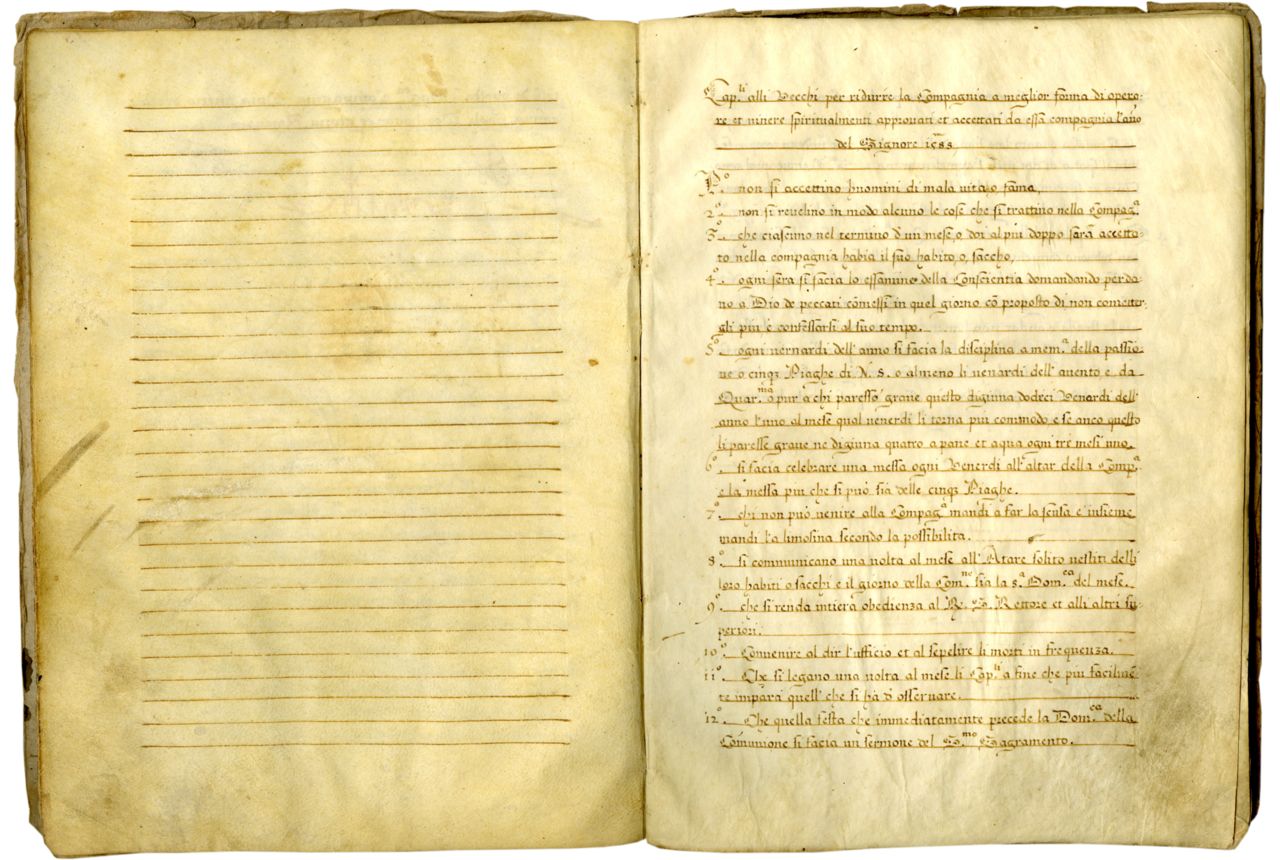 Cap.li alli Vecchi per ridurre la Compagnia a meglior forma di opero-
re et vivere spiritualmenti approvati et accettati da essa compagnia l'año
del Signore 1588
P.o non si accettino huomini di mala vita, o fama,
2.o non si revelino in modo alcuno le cose che si trattino nella Compag.a
3.o che ciascuno nel termino d'un mese, o doi al piu doppo sara accetto-
to nella compagnia habia il suo habito, o, saccho,
4.o ogni sera si facia lo essamine della Conscientia domandando perdo-
no a Dio de peccati cõmessi in quel giorno cõ proposto di non cometter-
gli piu e confessarsi al suo tempo.
5.o ogni vernardi dell'anno si facia la disciplina a mem.a della passio-
ne o cinqz Piaghe di N. S. o almeno li venardi dell'avento e da
Quar.ma o pur a chi paresse grave questo digiuna dodeci Venardi dell'
anno l'uno al mese qual venerdi li torna piu commodo e se anco questo
li paresse grave ne digiuna quatro a pane et aqua ogni tre mesi uno.
6.o si facia celebrare una messa ogni Venerdi all'altar della Comp.a
e la messa piu che si può sia delle cinqz Piaghe.
7.o chi non può venire alla Compag.a mandi a far la scusa e insieme
mandi la limosina secondo la possibilita.
8.o si communicano una volta al mese all'Atare solito vestiti delli
loro habiti o sacchi e il giorno della Com.ne sia la s.a Dom.ca del mese.
9.o che si renda intiera obedienza al R. S. Rettore et alli altri su-
periori.
10.o Convenire al dir l'ufficio et al sepelire li morti in frequenza.
11.o Che si legano una volta al mese li Cap.li a fine che piu facilmẽ-
te impara quell' che si ha d'osservare.
12.o Che quella festa che immediatamente precede la Dom.ca della
Comunione si facia un sermone del S.mo Sagramento.